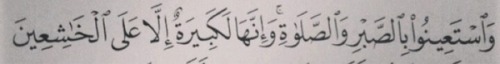 وَٱسْتَعِينُوا۟ بِٱلصَّبْرِ وَٱلصَّلَوٰةِ ۚ وَإِنَّهَا لَكَبِيرَةٌ إِلَّا عَلَى ٱلْخَـٰشِعِينَ